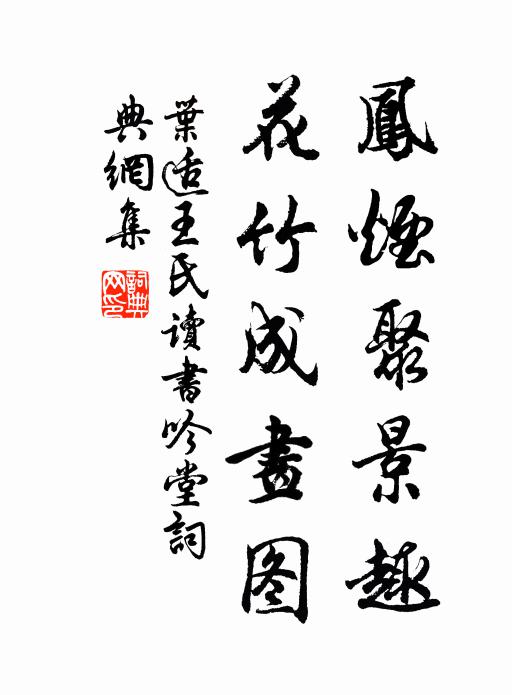 鳳煙聚景趣
花竹成畫图
葉适王氏讀書吟堂詞
典網集
詞典
网印